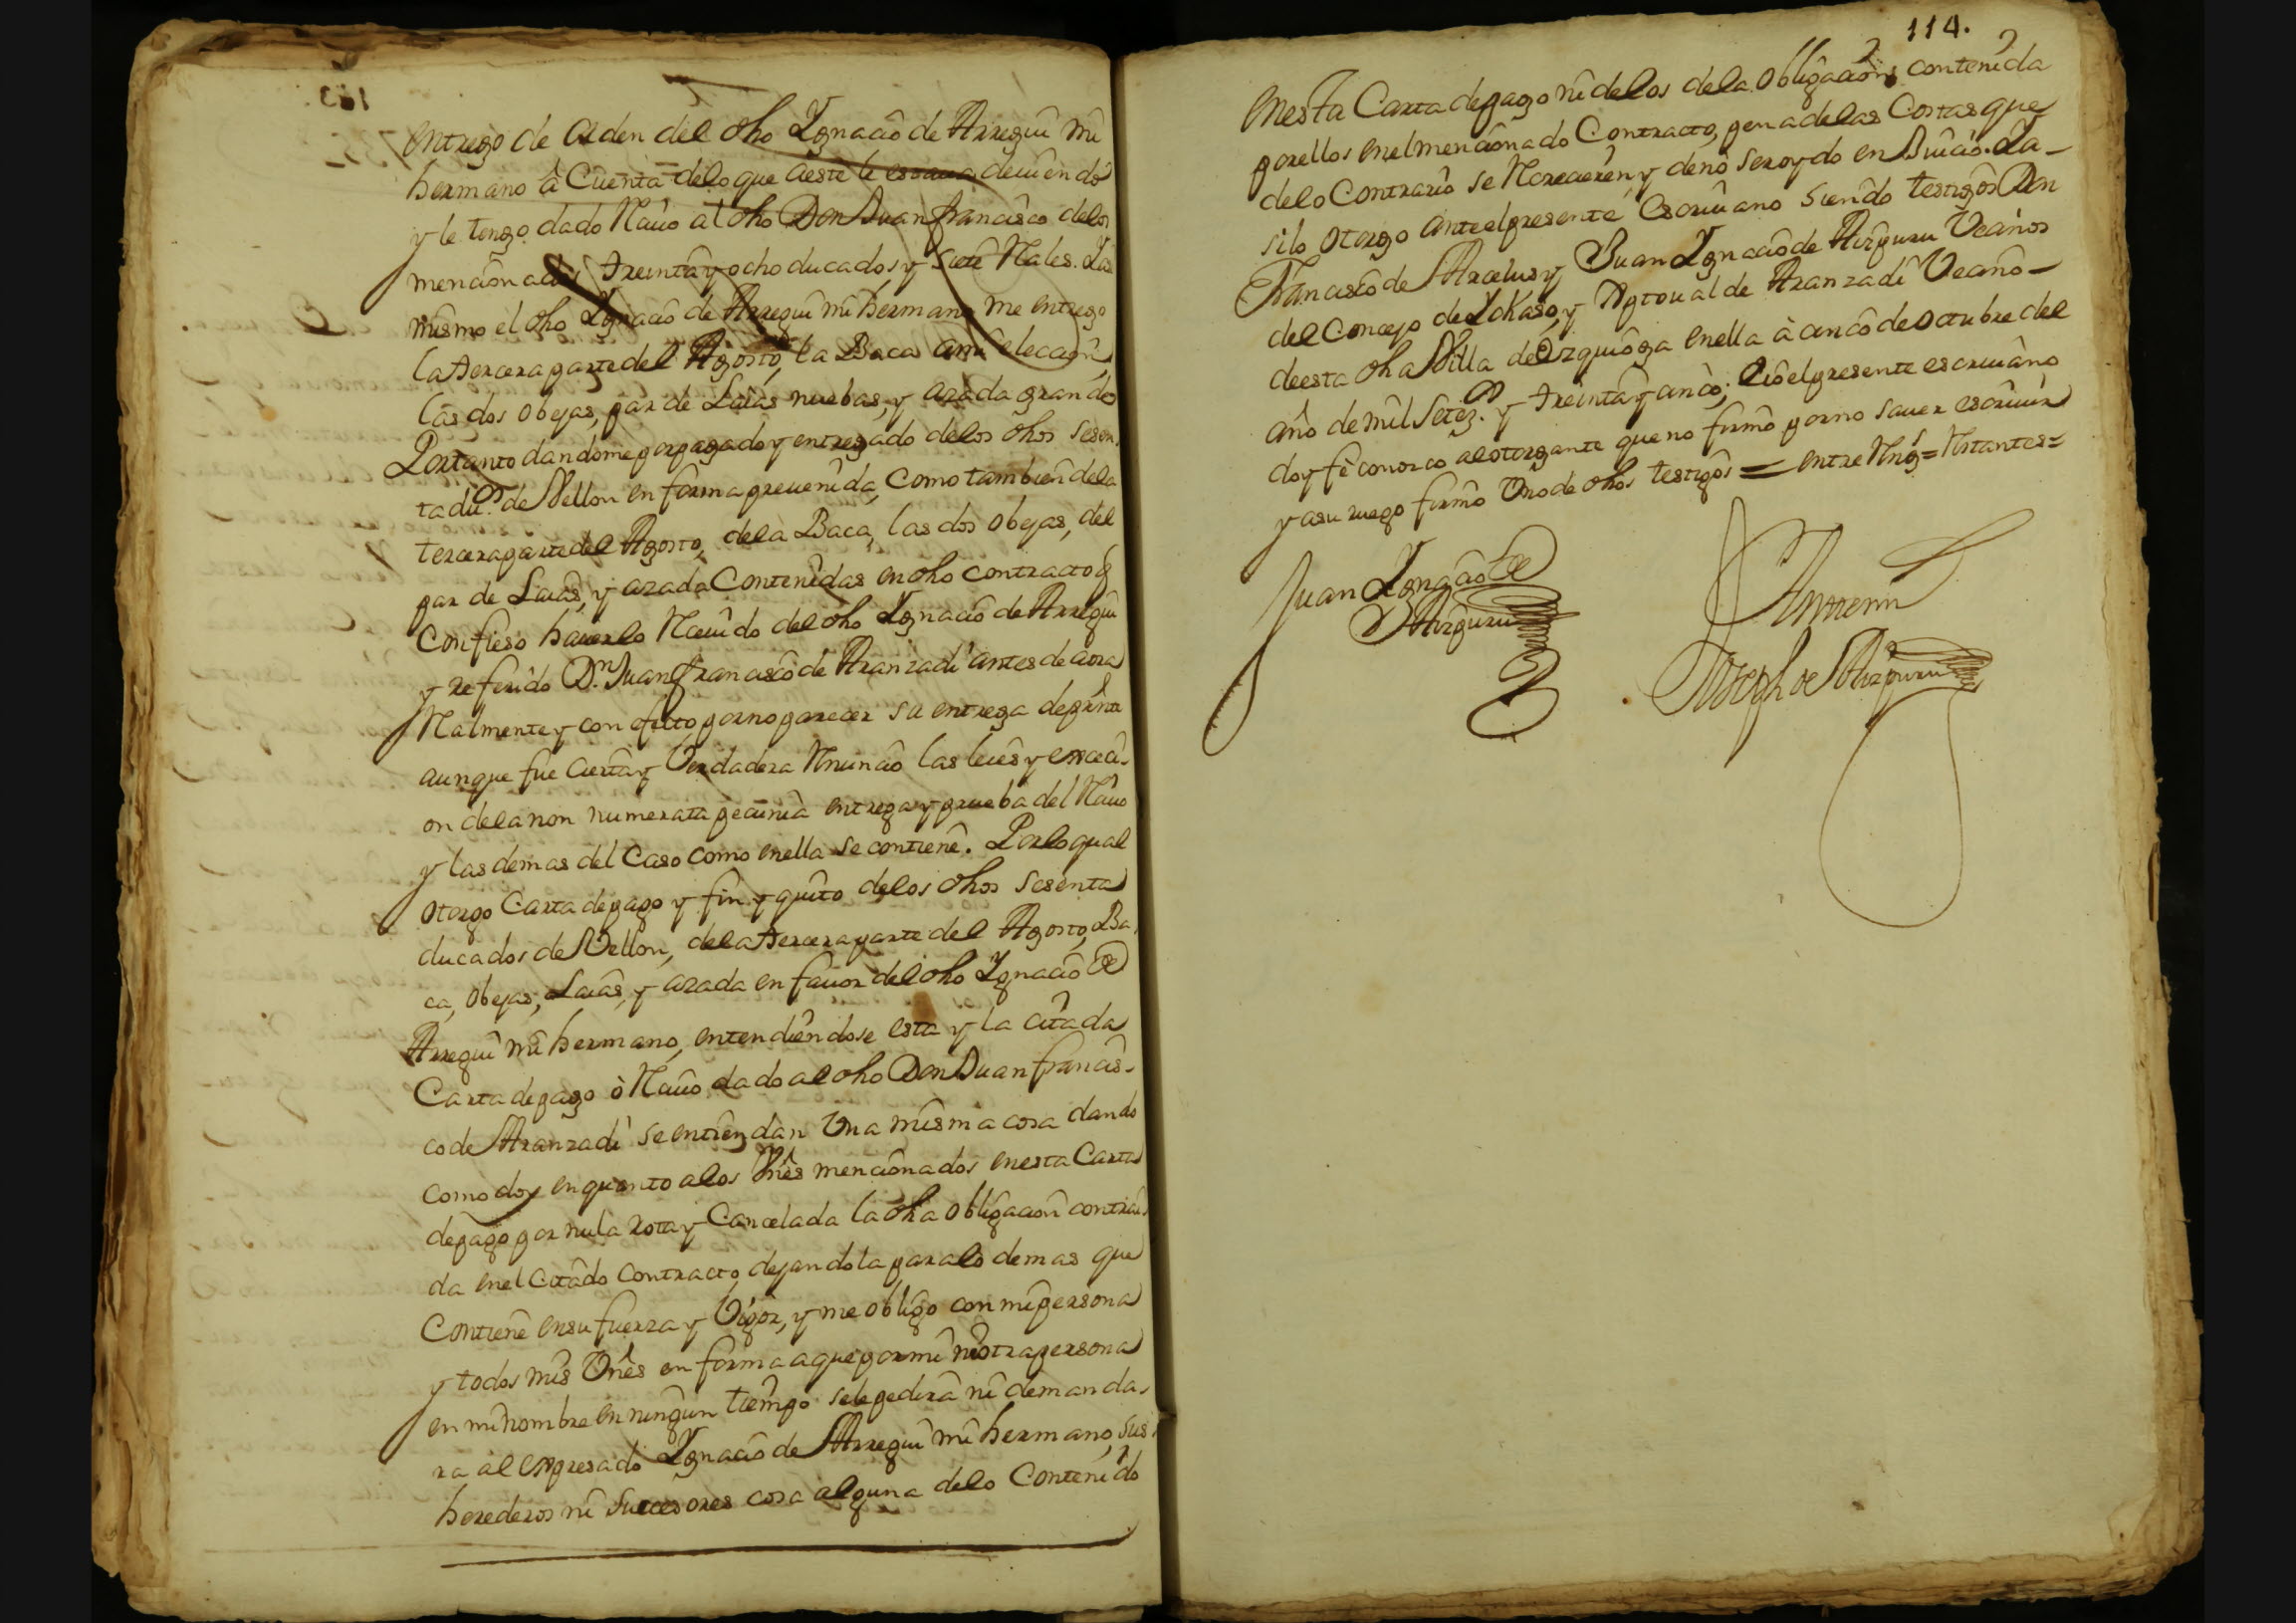 entrego de orden del dho Ygnacio de Arregui mi
hermano â Cuenta delo que âeste le estaua deuiendo
y le tengo dado Reciuo al dho Don Juan francisco delos
mencionados treinta y ocho ducados y siete Rales. Y asi
mismo el dho Ygnacio de Arregui mi hermano me entrego
la tercera parte del Agosto, la Baca âmi eleccion,
las dos obejas, par de Laias nuebas, y arada grande
Portanto dandome por pagado y entregado delos dhos sesen-
ta du.os de Vellon en forma preuenida, como tambien dela
tercera parte del Agosto, dela Baca, las dos obejas, del
par de Laias, y arada Contenidas en dho contracto q
confieso hauerlo Reciuido del dho Ygnacio de Arregui
y referido D.n Juan francisco de Aranzadi antes de aora
Realmente y con efecto por no parecer su entrega de press.te
aunque fue cierta y Verdadera Renuncio las leies y excepci-
on dela non numerata pecunia entrega y prueba del Reciuo
y las demas del Caso como enella se contiene. Porlo qual
otorgo Carta de pago y fin y quito delos dhos sesenta
ducados de Vellon, dela tercera parte del Agosto, Ba-
ca, obejas, Laias, y arada en fauor del dho Ygnacio de
Arregui mi hermano, entendiendose esta y la citada
Carta de pago ò Reciuo dado al dho Don Juan francis-
co de Aranzadi se entiendan Una misma cosa dando
como doy en quanto alos vnês mencionados enesta Carta
de pago por nula rota y Cancelada la dha obligacion contrai-
da enel citado contracto, dejandola para lo demas que
contiene ensu fuerza y Vigor, y me obligo con mi persona
y todos mis Vnês en forma a que por mi ni otra persona
en mi nombre en ningun tiempo sele pedirâ ni demanda-
ra al expresado Ygnacio de Arregui mi hermano, sus
herederos ni succesores cosa alguna delo Contenido
114.
enesta Carta de pago ni delos dela obligacion contenida
porellos enel mencionado Contracto, pena delas Costas que
delo Contrario se Recrecieren, y deno ser oydo en Juicio. Ya-
si lo otorgo ante el presente escriuano siendo testigos Don
Francisco de Arcelus y Juan Ygnacio de Aizpuru Vecinos
del Concejo de Ychaso, y Xptoual de Aranzadi Vecino
de esta dha Villa de Ezquioga enella à cinco de octubre del
año de mil setez.os y treinta y cinco; e io el presente escriuano
doy fè conozco al otorgante que no firmô por no sauer escriuir
y asu ruego firmô Uno de dhos testigos = entre Rng.s = Restantes =
Juan Ygnacio de
Aizpuru
Antemi
Joseph de Aizpuru